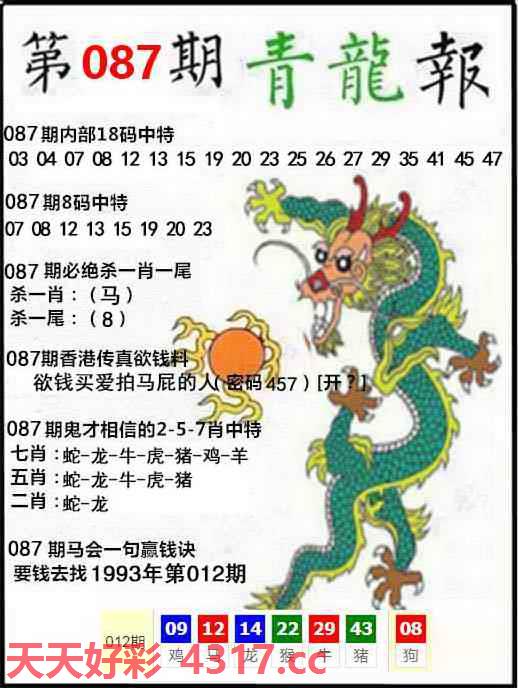 第087期青龍報
087期内部18码中特
03 04 07 08 12 13 15 19 20 23 25 26 27 29 35 41 45 47
087期8码中特
07 08 12 13 15 19 20 23
087期必绝杀一肖一尾
杀一肖：（马）
杀一尾：（8）
087期香港传真欲钱料
欲钱买爱拍马屁的人(密码457）[开？]
087期鬼才相信的2-5-7肖中特
七肖：蛇-龙-牛-虎-猪-鸡-羊
五肖：蛇-龙-牛-虎-猪
二肖：蛇-龙
087期马会一句赢钱诀
要钱去找1993年第012期
012期 09 12 14 22 29 43 08
鸡 马 龙 猴 牛 猪 狗
天天好彩 4317.cc